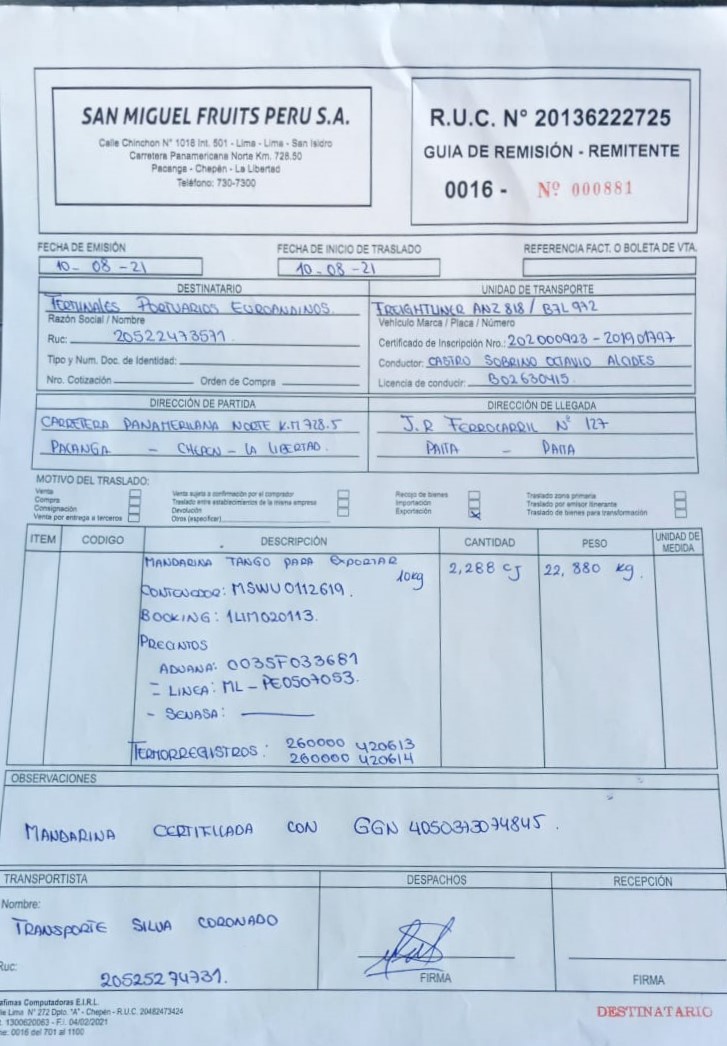 SAN MIGUEL FRUITS PERU S.A.
Calle Chinchon N° 1018 Int. 501 - Lima - Lima - San Isidro
Carretera Panamericana Norte Km. 728.50
Pacanga - Chepén - La Libertad
Teléfono: 730-7300
R.U.C. N° 20136222725
GUIA DE REMISIÓN - REMITENTE
0016 - Nº 000881
FECHA DE EMISIÓN
10 - 08 - 21
FECHA DE INICIO DE TRASLADO
10 - 08 - 21
REFERENCIA FACT. O BOLETA DE VTA.
DESTINATARIO
TERMINALES PORTUARIOS EUROANDINOS.
Razón Social / Nombre
Ruc: 20522473571.
Tipo y Num. Doc. de Identidad:
Nro. Cotización Orden de Compra
UNIDAD DE TRANSPORTE
FREIGHTLINER ANZ 818 / B7L 972
Vehículo Marca / Placa / Número
Certificado de Inscripción Nro.: 202000923 - 201901797
Conductor: CASTRO SOBRINO OCTAVIO ALCIDES
Licencia de conducir: B02630415.
DIRECCIÓN DE PARTIDA
CARRETERA PANAMERICANA NORTE K.M 728.5
PACANGA - CHEPEN - LA LIBERTAD.
DIRECCIÓN DE LLEGADA
J.R FERROCARRIL N° 127
PAITA - PAITA
MOTIVO DEL TRASLADO:
Venta
Compra
Consignación
Venta por entrega a terceros
Venta sujeta a confirmación por el comprador
Traslado entre establecimientos de la misma empresa
Devolución
Otros (especificar)
Recojo de bienes
Importación
Exportación X
Traslado zona primaria
Traslado por emisor itinerante
Traslado de bienes para transformación
ITEM CODIGO DESCRIPCIÓN CANTIDAD PESO UNIDAD DE MEDIDA
MANDARINA TANGO PARA EXPORTAR 10kg 2,288 CJ 22,880 kg.
CONTENEDOR: MSWU0112619.
BOOKING: 1LIM020113.
PRECINTOS
ADUANA: 0035F033681
- LINEA: ML - PE0507053.
- SENASA:
TERMORREGISTROS: 260000 420613
260000 420614
OBSERVACIONES
MANDARINA CERTIFICADA CON GGN 4050373074845.
TRANSPORTISTA
Nombre:
TRANSPORTE SILVA CORONADO
Ruc:
20525274731.
DESPACHOS
FIRMA
RECEPCIÓN
FIRMA
afimas Computadoras E.I.R.L.
le Lima N° 272 Dpto. "A" - Chepén - R.U.C. 20482473424
t. 1300620063 - F.I. 04/02/2021
ne: 0016 del 701 al 1100
DESTINATARIO